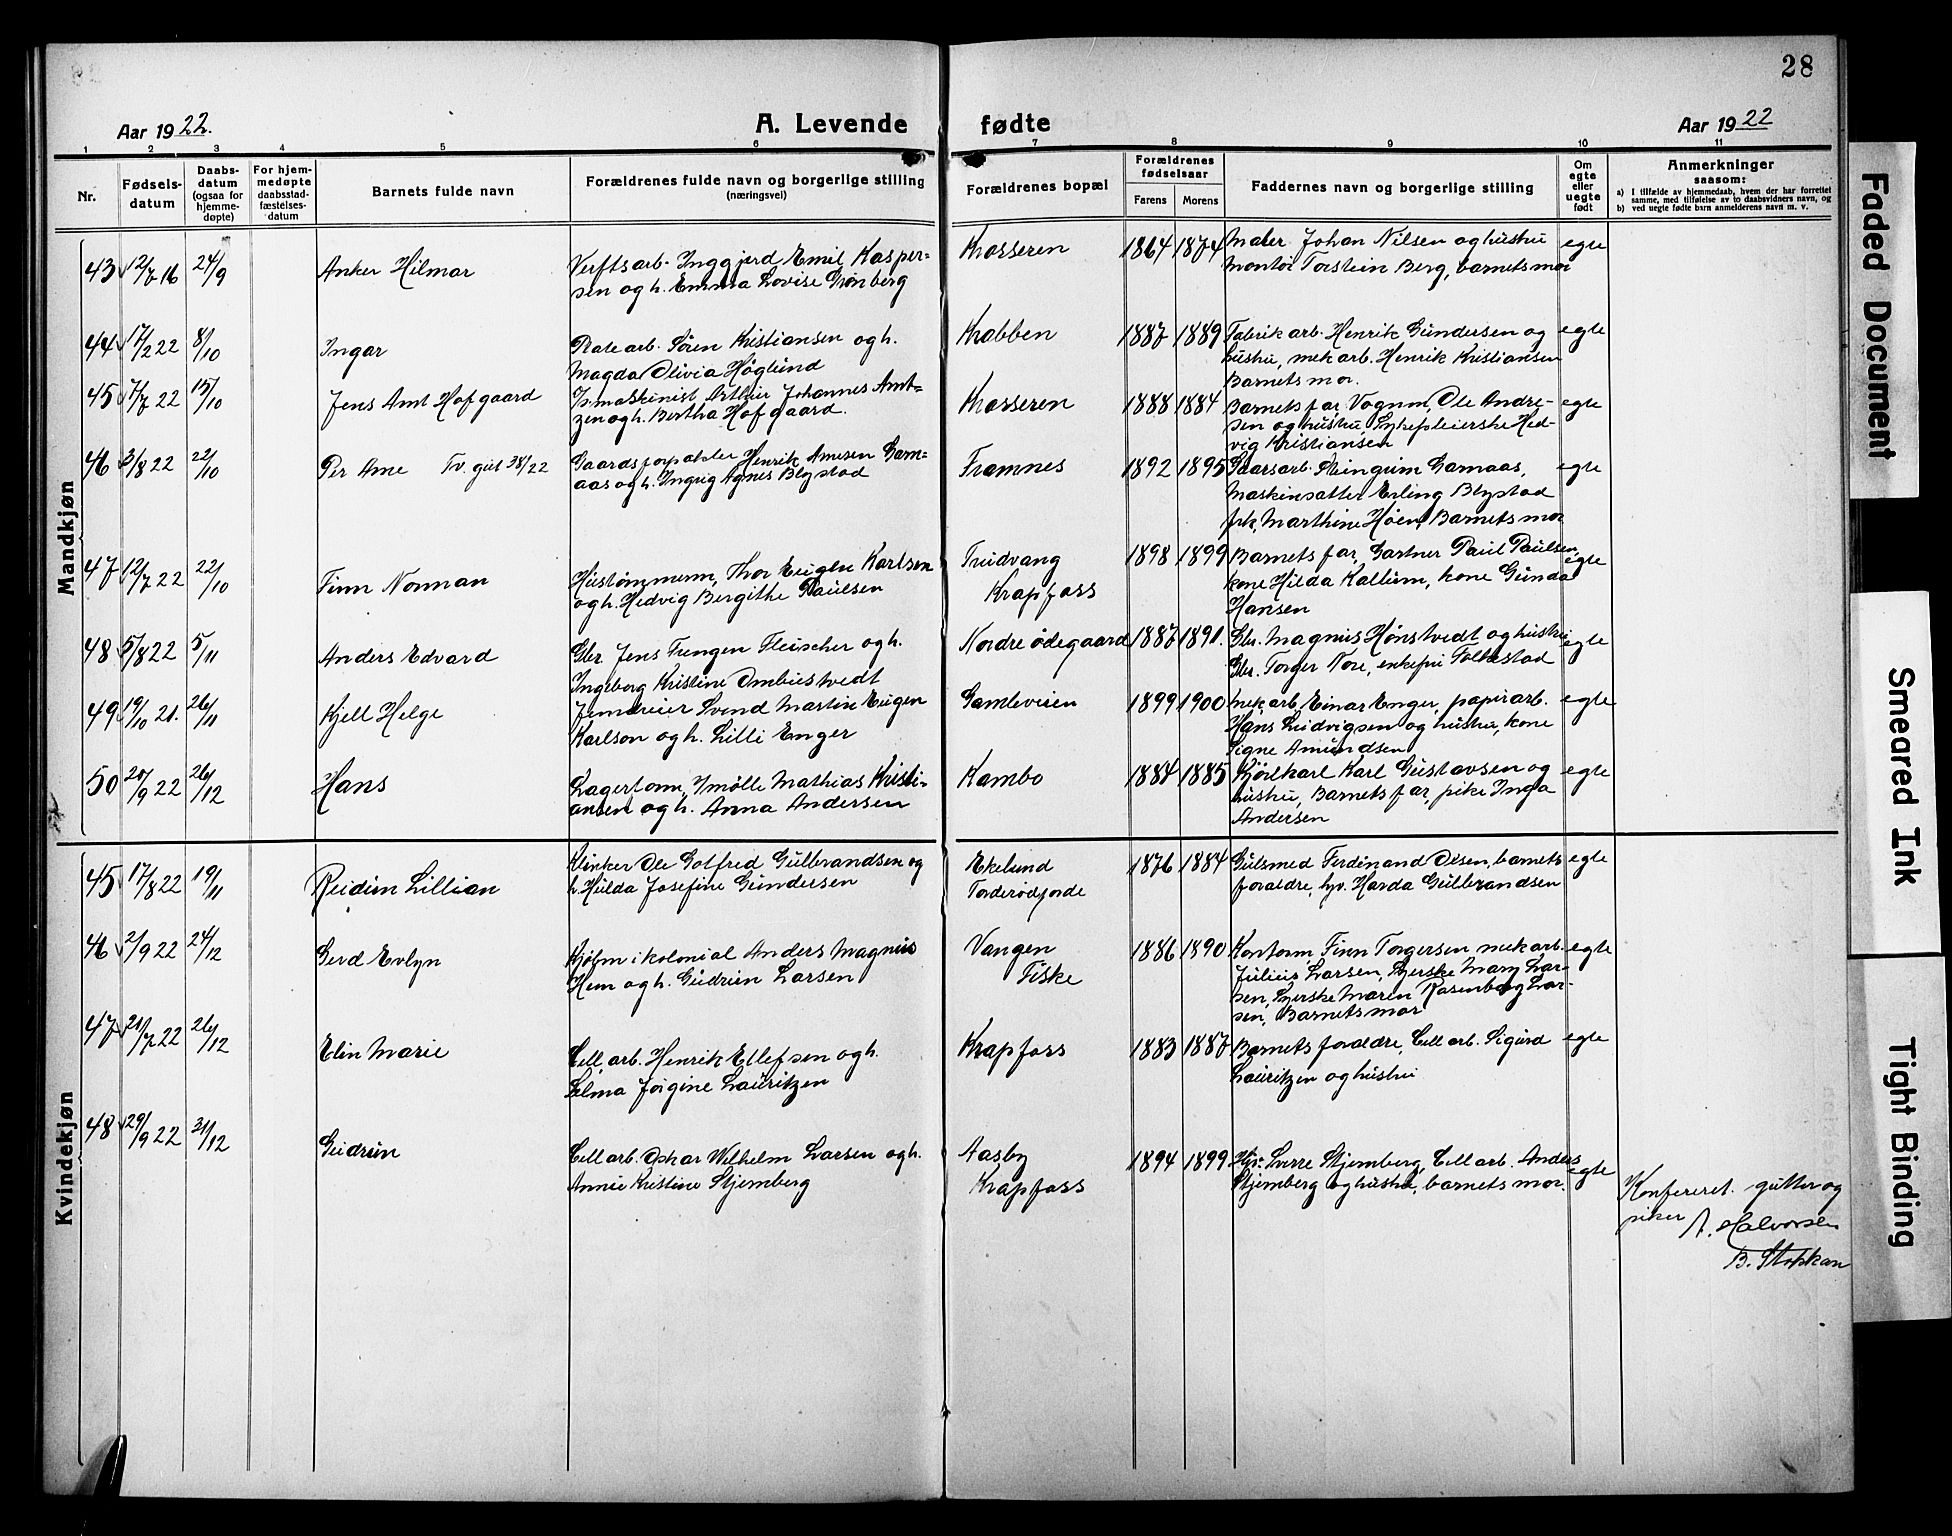 28
Aar 1922.
A. Levende fødte
Aar 1922
1 2 3 4 5 6 7 8 9 10 11
Nr.
Fødselsdatum
Daabsdatum (ogsaa for hjemmedøpte)
For hjemmedøpte daabsstadfæstelsesdatum
Barnets fulde navn
Forældrenes fulde navn og borgerlige stilling (næringsvei)
Forældrenes bopæl
Forældrenes fødselsaar
Farens Morens
Faddernes navn og borgerlige stilling
Om egte eller uegte født
Anmerkninger
saasom:
a) I tilfælde av hjemmedaab, hvem der har forrettet
samme, med tilføielse av to daabsvidners navn, og
b) ved uegte fødte barn anmelderens navn m. v.
Mandkjøn
43 12/7 16 24/9 Anker Hilmar
Verftsarb. Inggjerd Emil Kasper=
sen og h. Emma Lovise Grønberg
Krosseren 1864 1874
Maler Johan Nilsen og hustru
montør Torstein Berg, barnets mor
egte
44 17/2 22 8/10 Ingar
Platearb. Søren Kristiansen og h.
Magda Olivia Høglund
Krabben 1887 1889
Fabrikarb. Henrik Gundersen og
hustru, mek arb. Henrik Kristiansen
Barnets mor.
egte
45 7/7 22 15/10 Jens Arnt Hofgaard
maskinist Arthur Johannes Arnt=
zen og h. Bertha Hofgaard.
Krosseren 1888 1884
Barnets far, Vognm, Ole Andre-
sen og hustru, Sykepleierske Hed-
vig Kristiansen
egte
46 3/8 22 22/10 Per Arne Tv. gut 38/22
Gaardsforpakter Henrik Arnesen Gam=
aas og h. Ingrig Agnes Blystad
Framnes 1892 1895
Gaarsarb. Steingrim Gamaas,
Maskinsatter Erling Blystad
frk. Marthine Høen, Barnets mor
egte
47 12/7 22 22/10 Finn Norman
Hustømmerm, Thor Eugen Karlsen
og h. Hedvig Bergithe Paulsen
Trudvang
Krapfoss
1898 1899
Barnets far, Gartner Paul Paulsen,
kone Hilda Kallum, kone Gunda
Hansen
egte
48 5/8 22 5/11 Anders Edvard
Gbr. Jens Trengen Fleischer og h.
Ingeborg Kristine Ombustvedt
Nordre ødegaard 1887 1891.
Gbr. Magnus Hønstvedt og hustru
Gbr. Torger Nore, enkefru Tolbestad
egte
49 19/10 21. 26/11 Kjell Helge
Jerndreier Svend Martin Eugen
Karlson og h. Lilli Enger
Gamleveien 1899 1900
mek, arb, Einar Enger, papirarb.
Hans Ludvigsen og hustru, kone
Signe Amundsen
egte
50 20/9 22 26/12 Hans
Lagertom, Mathias Kristi-
ansen og h. Anna Andersen
Kambo 1884 1885
Kjørlkarl Karl Gustavsen og
hustru, Barnets far, pike Inga
Andersen
egte
Kvindekjøn
45 17/8 22 19/11 Reidun Lillian
Klinker Ole Gotfred Gulbrandsen og
h. Hulda Josefine Gundersen
Ekelund
1876 1884
Gulsmed Ferdinand Olsen, barnets
foraldre, Harda Gulbrandsen
egte
46 2/9 22 24/12 Gerd Evlyn
Kjøbm i kolonial Anders Magnus
Hem og h. Gudrun Larsen
Vangen
Tiske
1886 1890
Kontorm Finn Torgersen mek arb.
Julius Larsen, Syerske Mary Lar-
sen, Syerske Maren Rosenborg Lar-
sen, Barnets mor
egte
47 21/7 22 26/12 Elin Marie
Cell. arb. Henrik Ellefsen og h.
Selma Jørgine Lauritzen
Krapfoss 1883 1887
Barnets foraldre, Cell arb. Sigurd
Lauritzen og hustru
egte
48 29/9 22 31/12 Gudrun
Cell arb. Oskar Wilhelm Larsen og h.
Annie Kristine Stjernberg
Aasby
Krapfoss
1894 1899
Sverre Stjernberg, Cell arb. Anders
Stjernberg og hustru, barnets mor.
egte
Konfereret. gutter og
piker A. Halvorsen
B.
Faded Document
Smeared Ink
Tight Binding